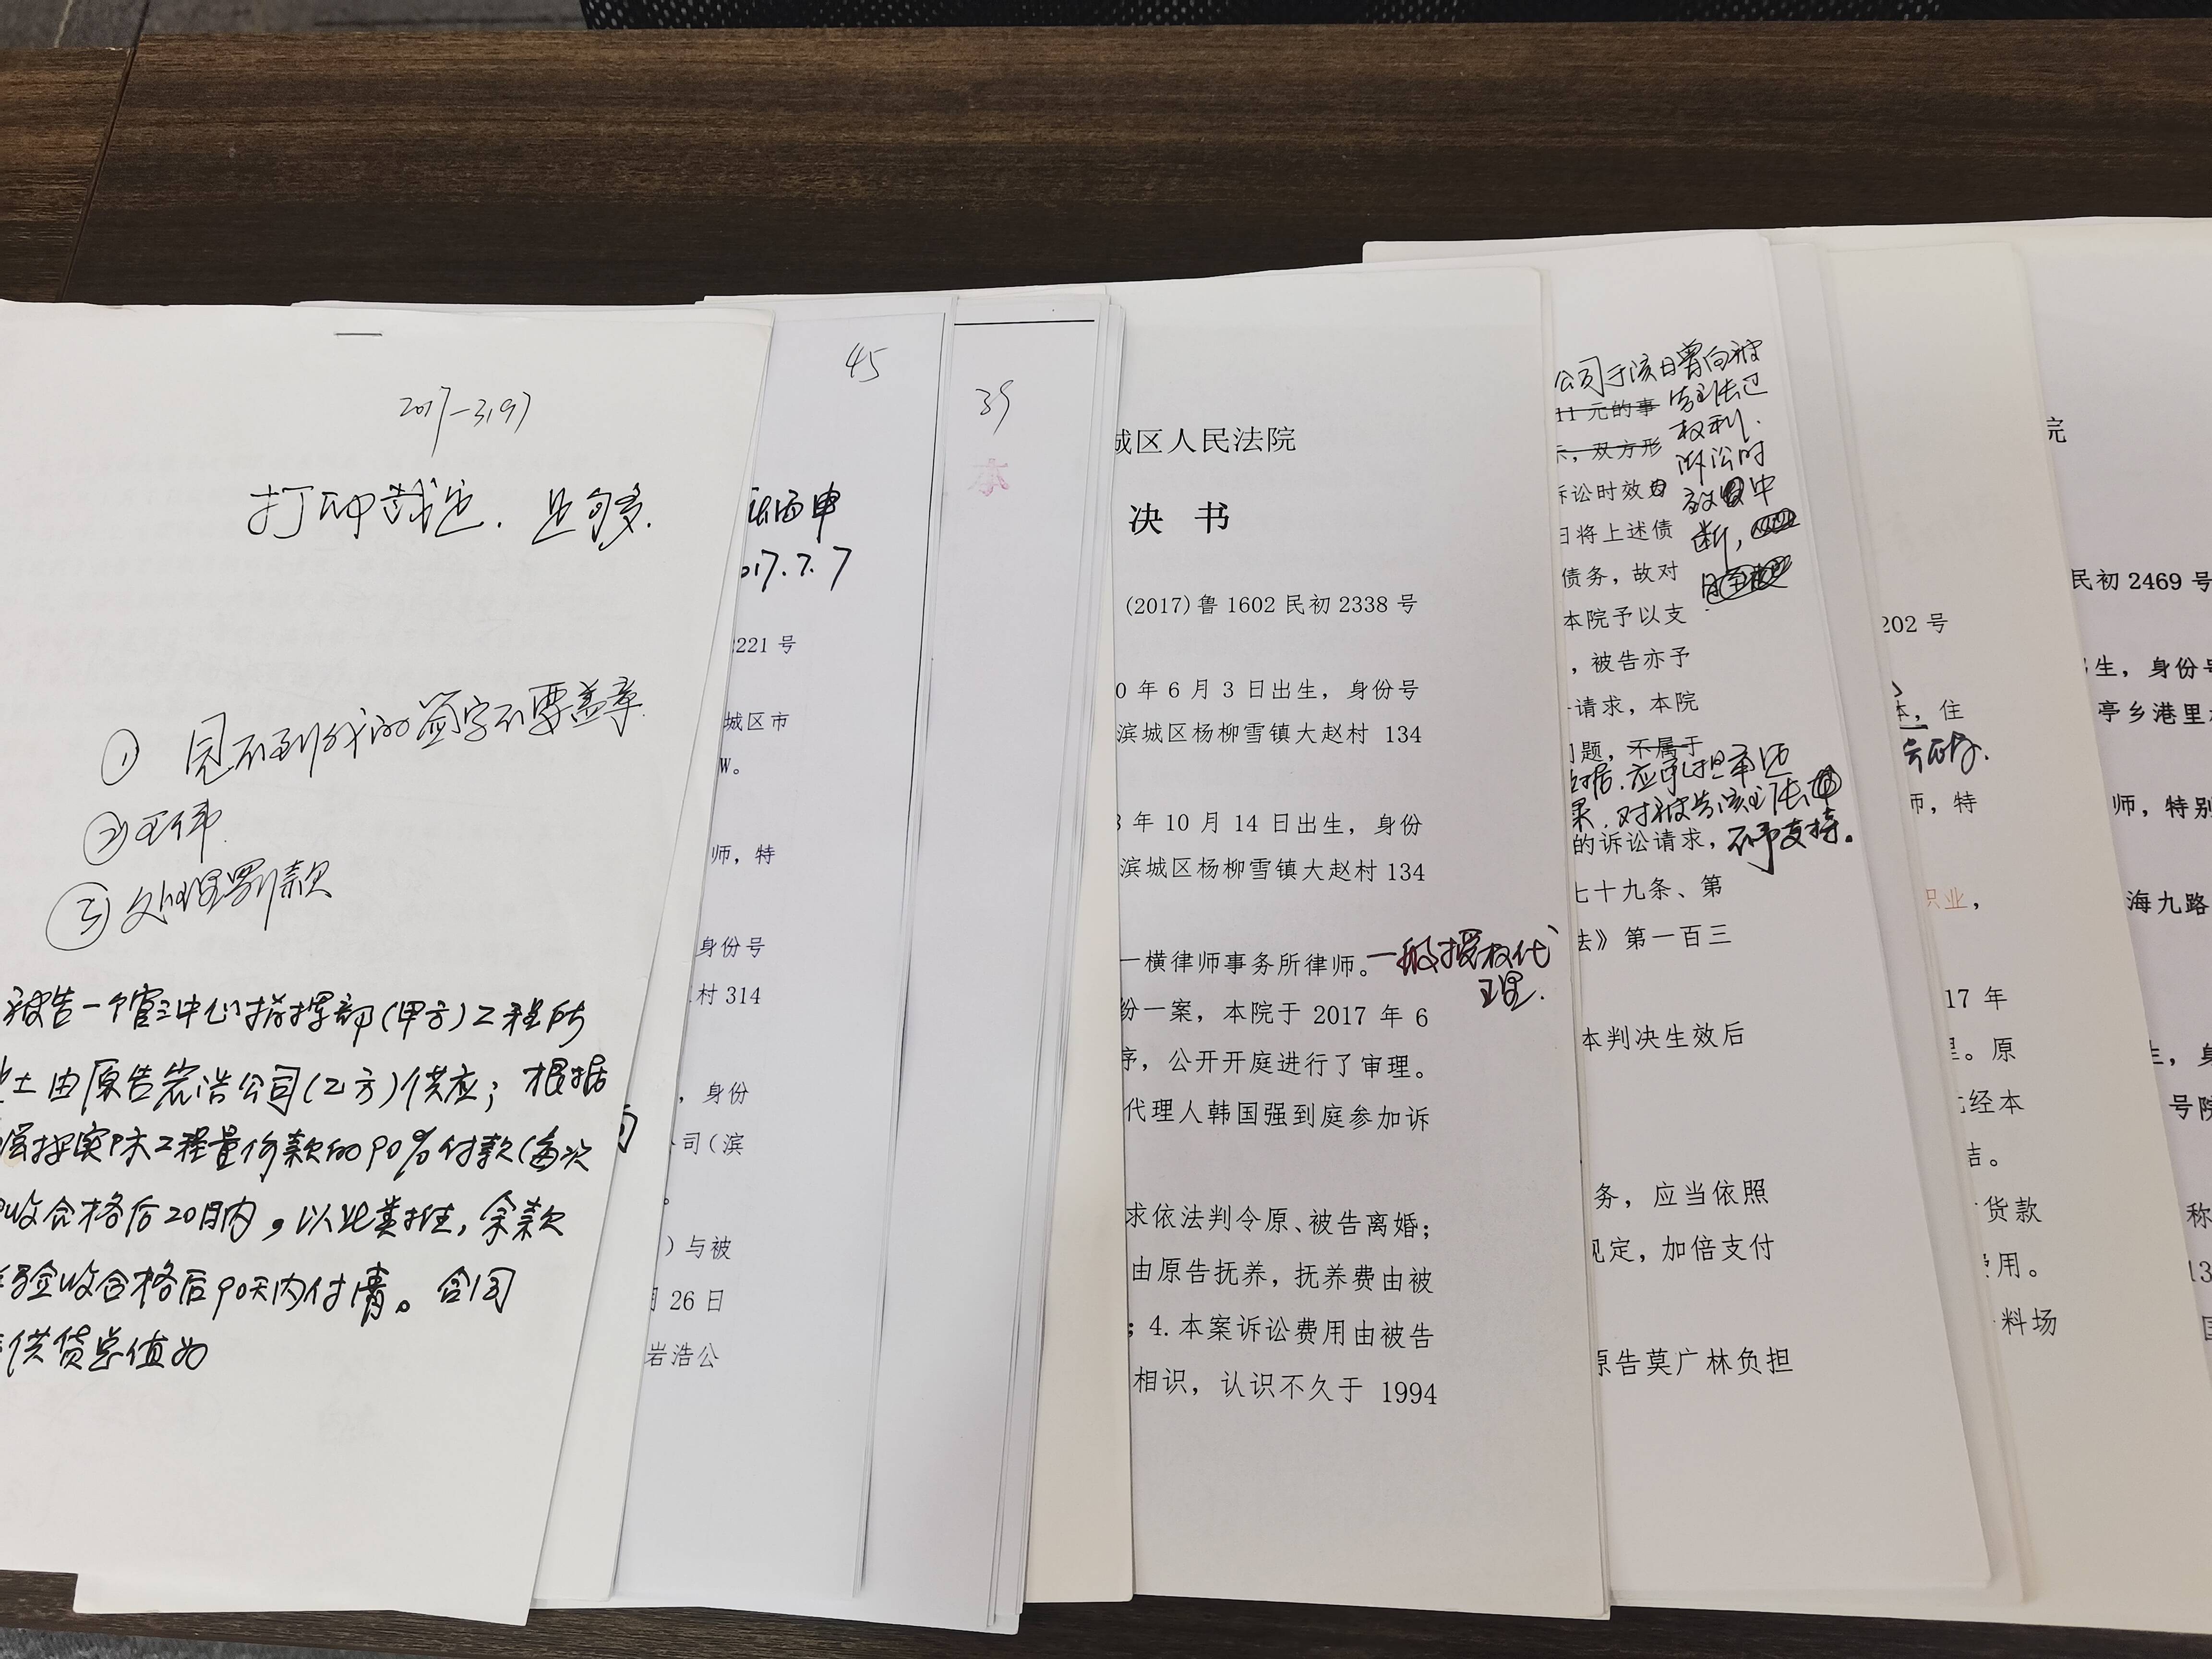 打印裁定.
①见不到我的签字不要盖章.
②
③处理罚款
(甲方)工程所
土由原告岩浩公司(乙方)供应；根据
按实际工程量价款的90%付款(每次
收合格后20日内，以此类推，余款
验收合格后90天内付清。合同
供货总值为
45
017.7.7
2221 号
城区市
W。
师，特
身份号
村 314
，身份
公司（滨
。
）与被
月 26 日
岩浩公
39
本
城区人民法院
决 书
(2017)鲁 1602 民初 2338 号
0 年 6 月 3 日出生，身份号
滨城区杨柳雪镇大赵村 134
3 年 10 月 14 日出生，身份
滨城区杨柳雪镇大赵村 134
一横律师事务所律师。一般授权代
理.
纷一案，本院于 2017 年 6
序，公开开庭进行了审理。
代理人韩国强到庭参加诉
求依法判令原、被告离婚；
由原告抚养，抚养费由被
；4.本案诉讼费用由被告
相识，认识不久于 1994
公司于该日曾向被
11 元的事 告主张过
示，双方形 权利.
诉讼时
诉讼时效
效中
日将上述债 断，
债务，故对
本院予以支
，被告亦予
请求，本院
问题，不属于
果.对被告该主张
的诉讼请求，不予支持。
七十九条、第
法》第一百三
本判决生效后
务，应当依照
规定，加倍支付
原告莫广林负担
202 号
本，住
师，特
职业，
17 年
理。原
经本
结。
货款
费用。
料场
院
民初 2469 号
出生，身份号
亭乡港里
师，特别
海九路
生，身
号院
称
13